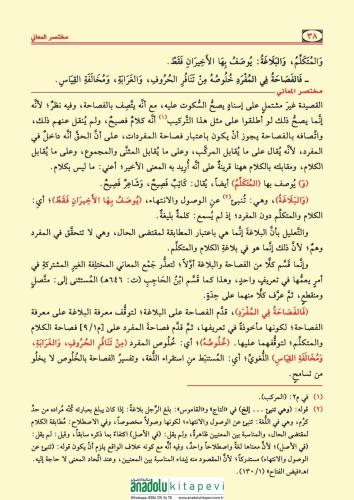 ٣٨
مختصر المعاني
وَالمُتَكَلِّمُ، وَالبَلَاغَةُ: يُوصَفُ بِهَا الأَخِيرَانِ فَقَطْ.
ـ فَالفَصَاحَةُ فِي المُفْرَدِ خُلُوصُهُ مِنْ تَنَافُرِ الحُرُوفِ، وَالغَرَابَةِ، وَمُخَالَفَةِ القِيَاسِ.
مختصر المعاني
القصيدة غيرَ مشتملٍ على إسنادٍ يصحُّ السكوت عليه، مع أنَّه يتَّصِف بالفصاحة، وفيه نظرٌ؛ لأنَّه
إنَّما يصحُّ ذلك لو أطلقوا على مثل هذا التركيب(١) أنَّه كلامٌ فصيحٌ، ولم يُنقل عنهم ذلك،
واتِّصافه بالفصاحة يجوز أنْ يكون باعتبار فصاحة المفردات، على أنَّ الحقَّ أنَّه داخلٌ في
المفرد، لأنَّه يُقال على ما يُقابل المركَّب، وعلى ما يُقابل المثنَّى والمجموع، وعلى ما يُقابل
الكلام، ومقابلته بالكلام ههنا قرينةٌ على أنَّه أُريد به المعنى الأخير؛ أعني: ما ليس بكلام.
(وَ) يُوصف بها (المُتَكَلِّمُ) أيضاً، يُقال: كاتِبٌ فَصِيحٌ، وشَاعِرٌ فَصِيحٌ.
(وَالبَلَاغَةُ)، وهي: تُنبئُ(٢) عن الوصول والانتهاء، (يُوصَفُ بِهَا الأَخِيرَانِ فَقَطْ)؛ أي:
الكلام والمتكلِّم دون المفرد؛ إذ لم يُسمع: كلمةٌ بليغةٌ.
والتَّعليل بأنَّ البلاغة إنَّما هي باعتبار المطابقة لمقتضى الحال، وهي لا تتحقَّق في المفرد
وهمٌ؛ لأنَّ ذلك إنَّما هو في بلاغةِ الكلامِ والمتكلِّم.
وإنَّما قَسم كلًّا من الفصاحة والبلاغة أوَّلًا؛ لتعذُّر جَمْع المعاني المختلِفة الغيرِ المشتركةِ في
أمرٍ يعمُّها في تعريفٍ واحدٍ، وهذا كما قسم ابْنُ الحَاجِبِ (ت: ٦٤٦هـ) المستثنى إلى: متَّصلٍ
ومنقطعٍ، ثمَّ عرَّف كلًّا منهما على حِدَةٍ.
(فَالفَصَاحَةُ فِي المُفْرَدِ)، قدَّم الفصاحة على البلاغة؛ لتوقُّف معرفة البلاغة على معرفة
الفصاحة؛ لكونها مأخوذةً في تعريفها، ثمَّ قدَّم فصاحة المفرد على [٩/أ] فصاحة الكلام
والمتكلِّم؛ لتوقُّفهما عليها. (خُلُوصُهُ)؛ أي: خلوص المفرد (مِنْ تَنَافُرِ الحُرُوفِ، وَالغَرَابَةِ،
وَمُخَالَفَةِ القِيَاسِ) اللُّغويِّ؛ أي: المُستَنبَط من استقراء اللُّغة، وتفسيرُ الفصاحة بالخُلُوص لا يخلُو
من تسامحٍ.
(١) في م٢: (المركب).
(٢) قوله: (وهي تنبئ ... إلخ) في
الوصول والانتهاء)
(١/١٣٠)
anadolu kitapevi